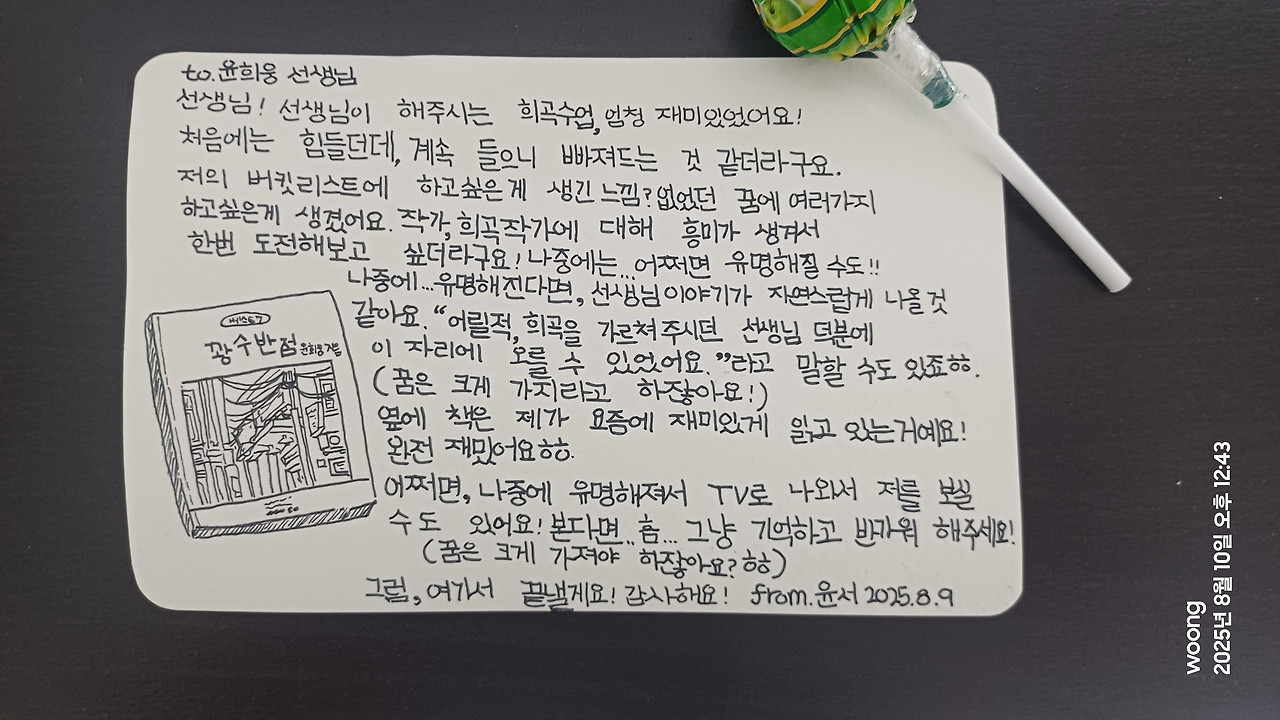 to. 윤희웅 선생님
선생님! 선생님이 해주시는 희곡수업, 엄청 재미있었어요!
처음에는 힘들던데, 계속 들으니 빠져드는 것 같더라구요.
저의 버킷리스트에 하고싶은게 생긴 느낌? 없었던 꿈에 여러가지
하고싶은게 생겼어요. 작가, 희곡작가에 대해 흥미가 생겨서
한번 도전해보고 싶더라구요! 나중에는... 어쩌면 유명해질 수도!!
나중에...유명해진다면, 선생님 이야기가 자연스럽게 나올 것
같아요. "어릴적, 희곡을 가르쳐 주시던 선생님 덕분에
이 자리에 오를 수 있었어요."라고 말할 수도 있죠ㅎㅎ.
(꿈은 크게 가지라고 하잖아요!)
옆에 책은 제가 요즘에 재미있게 읽고 있는거예요!
완전 재밌어요ㅎㅎ.
어쩌면, 나중에 유명해져서 TV로 나와서 저를 보실
수도 있어요! 본다면.. 흠... 그냥 기억하고 반가워 해주세요!
(꿈은 크게 가져야 하잖아요? ㅎㅎ)
그럼, 여기서 끝낼게요! 감사해요! from. 윤서 2025.8.9
베스트
광수반점 윤희웅 지음
woong
2025년 8월 10일 오후 12:43